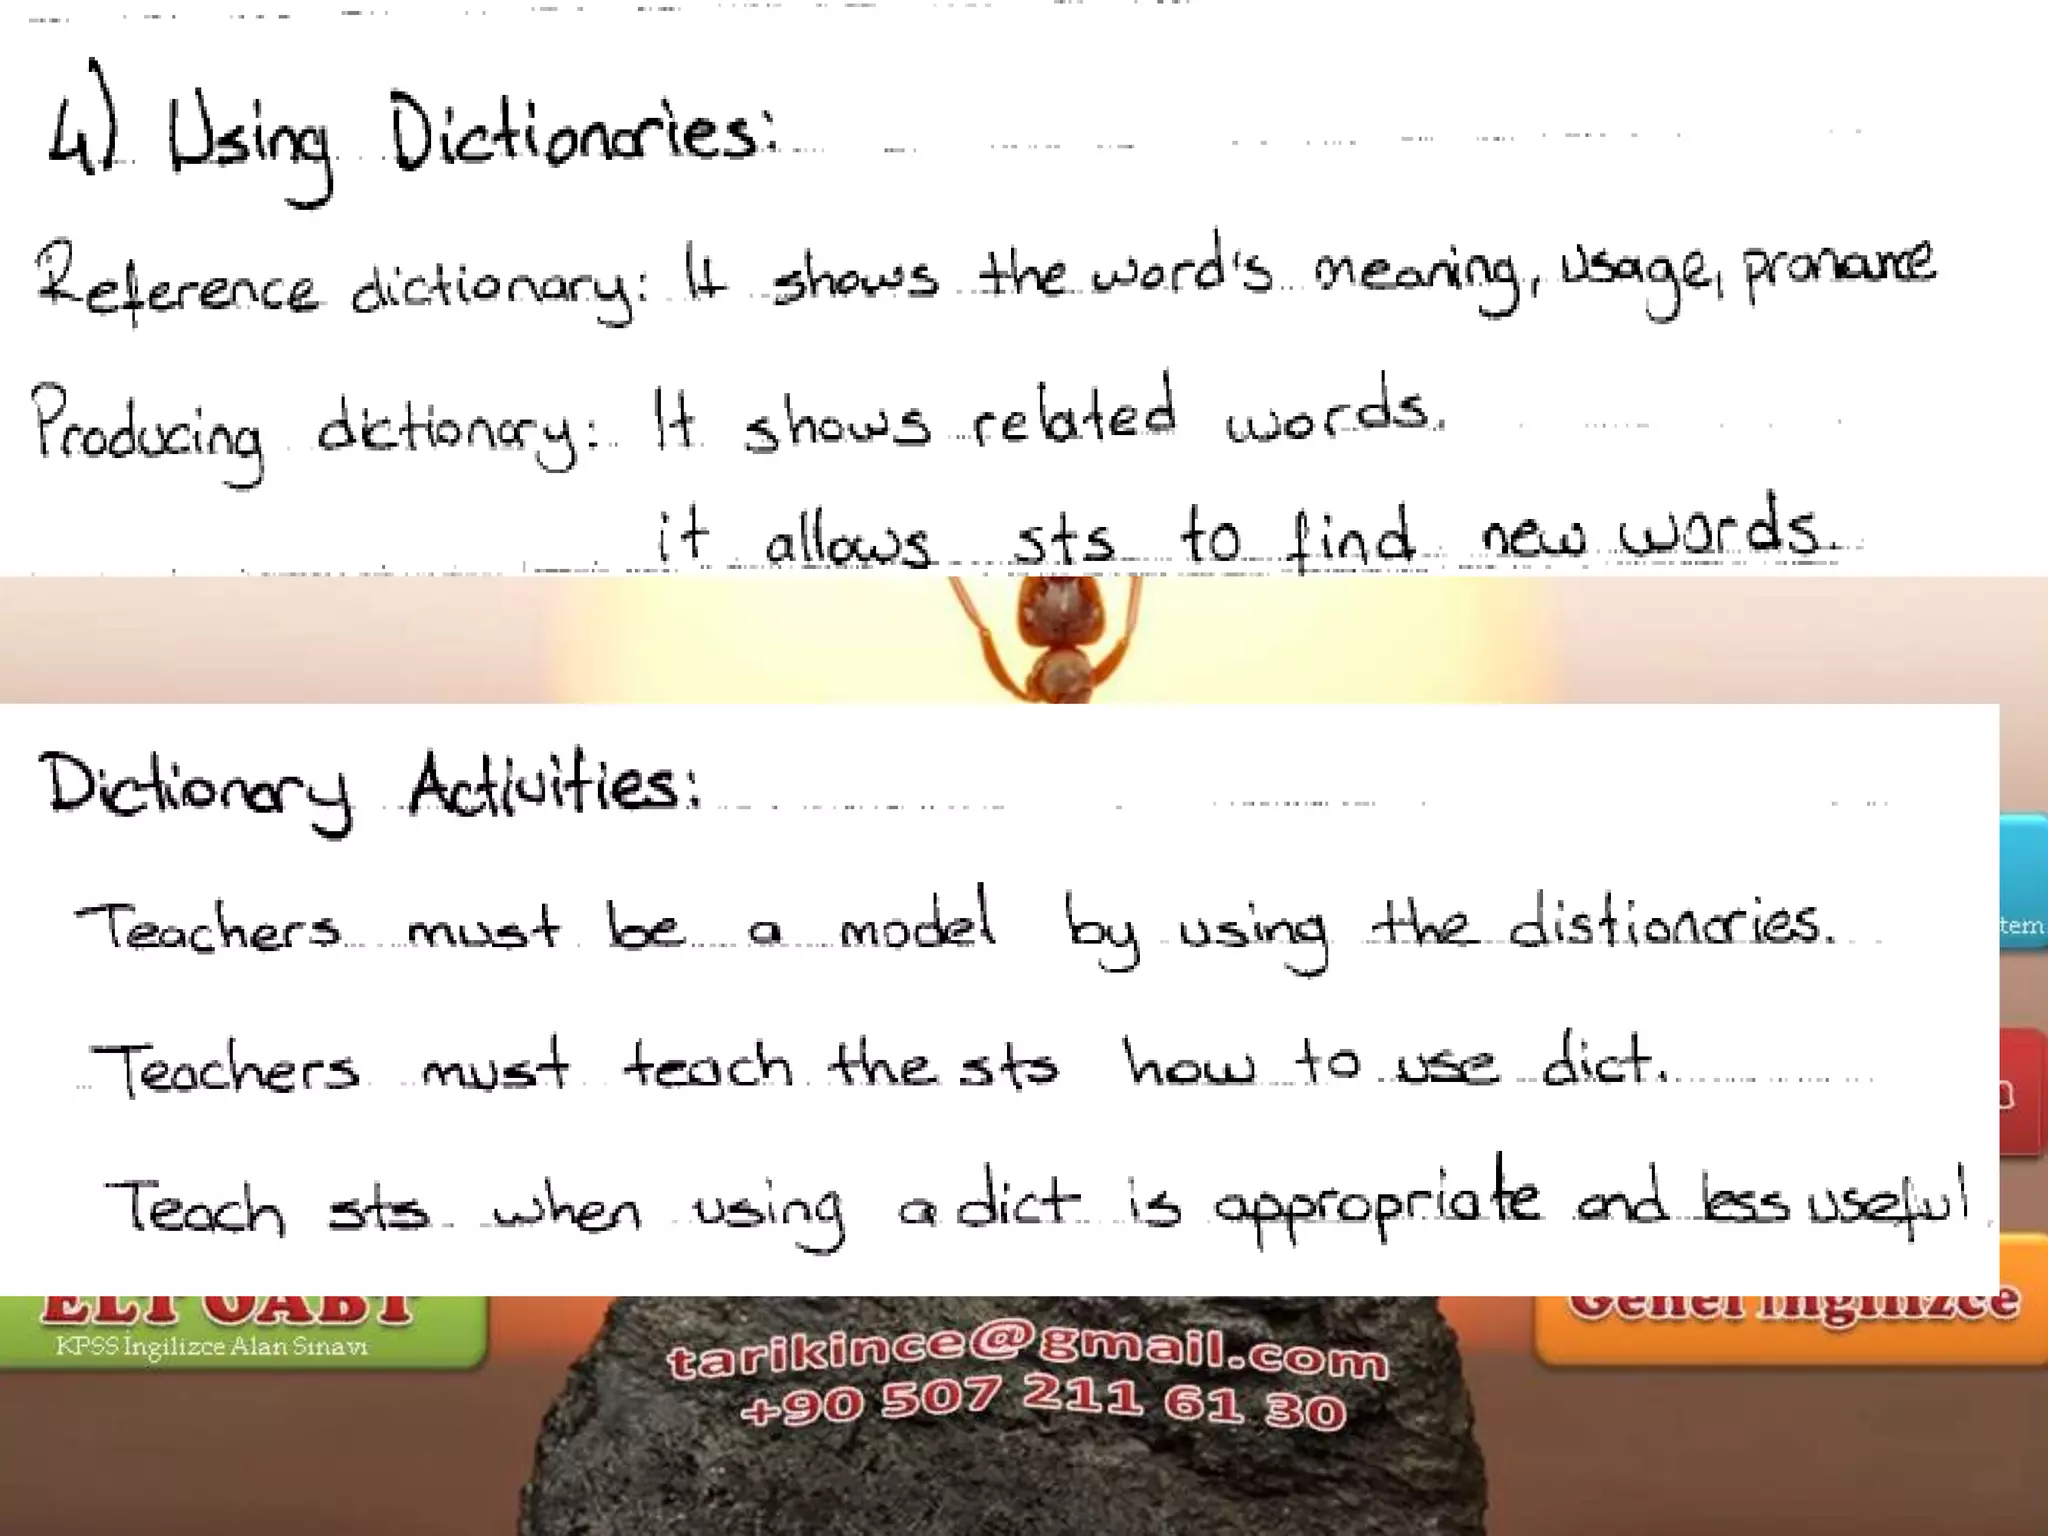 4) Using Dictionaries:
Reference dictionary: It shows the word's meaning, usage, pronance
Producing dictionary: It shows related words.
it allows sts to find new words.
Dictionary Activities:
Teachers must be a model by using the distionaries.
tem
Teachers must teach the sts how to use dict.
Teach sts when using a dict is appropriate and less useful
ELT ÖABT
Genel İngilizce
KPSS İngilizce Alan Sınavı
tarikince@gmail.com
+90 507 211 61 30